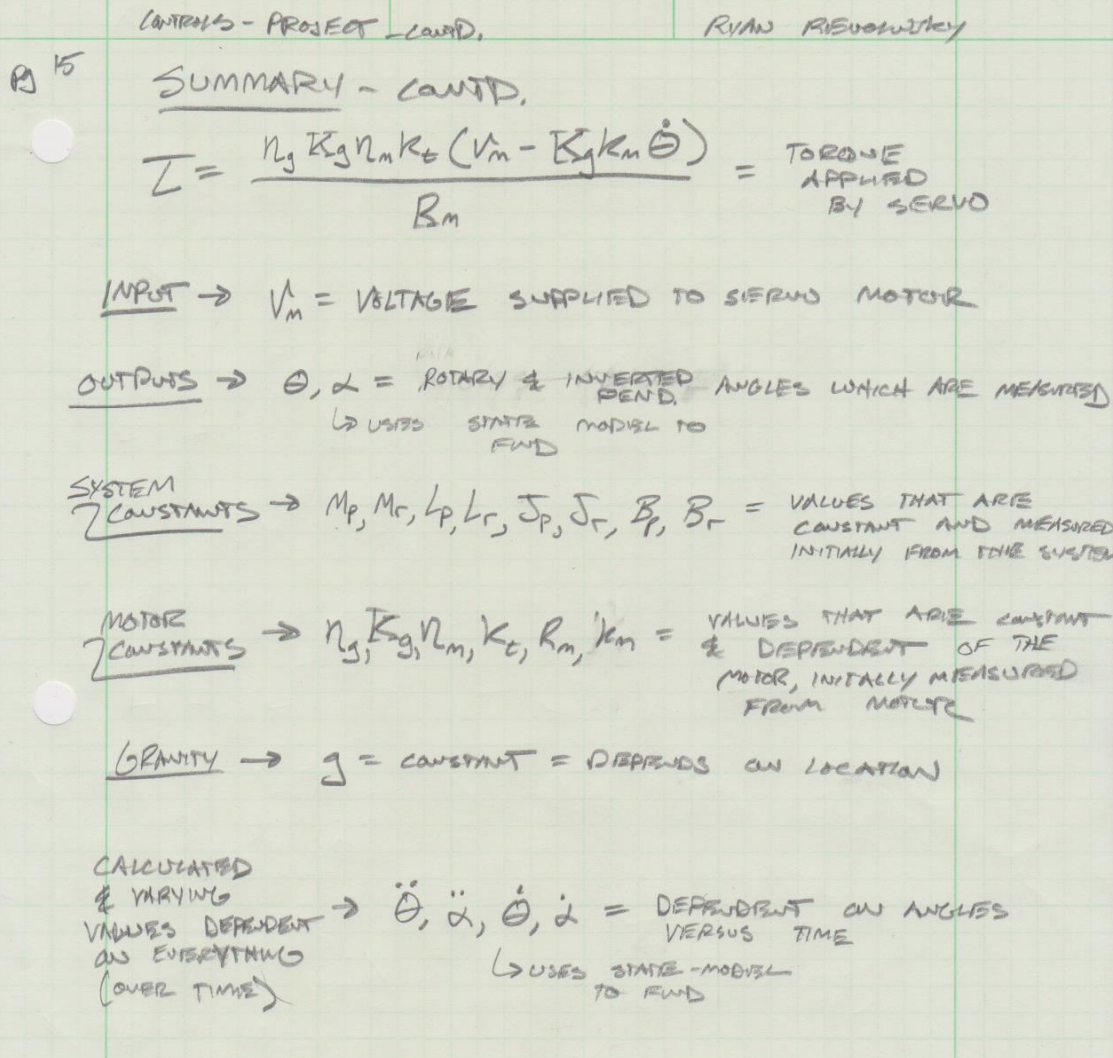 CONTROLS - PROJECT - CONTD.
RYAN
Pg 15
SUMMARY - CONTD.
τ = ηg Kg ηm kt (Vm - Kg km θ̇) / Rm = TORQUE
APPLIED
BY SERVO
INPUT → Vm = VOLTAGE SUPPLIED TO SERVO MOTOR
OUTPUTS → θ, α = ROTARY & INVERTED PEND. ANGLES WHICH ARE MEASURED
↳ USES STATE MODEL TO
FIND
SYSTEM
CONSTANTS → Mp, Mr, Lp, Lr, Jp, Jr, Bp, Br = VALUES THAT ARE
CONSTANT AND MEASURED
INITIALLY FROM THE SYSTEM
MOTOR
CONSTANTS → ηg, Kg, ηm, kt, Rm, km = VALUES THAT ARE CONSTANT
& DEPENDENT OF THE
MOTOR, INITALLY MEASURED
FROM MOTOR
GRAVITY → g = CONSTANT = DEPENDS ON LOCATION
CALCULATED
& VARYING
VALUES DEPENDENT
ON EVERYTHING
(OVER TIME)
→ θ̈, α̈, θ̇, α̇ = DEPENDENT ON ANGLES
VERSUS TIME
↳ USES STATE-MODEL
TO FIND